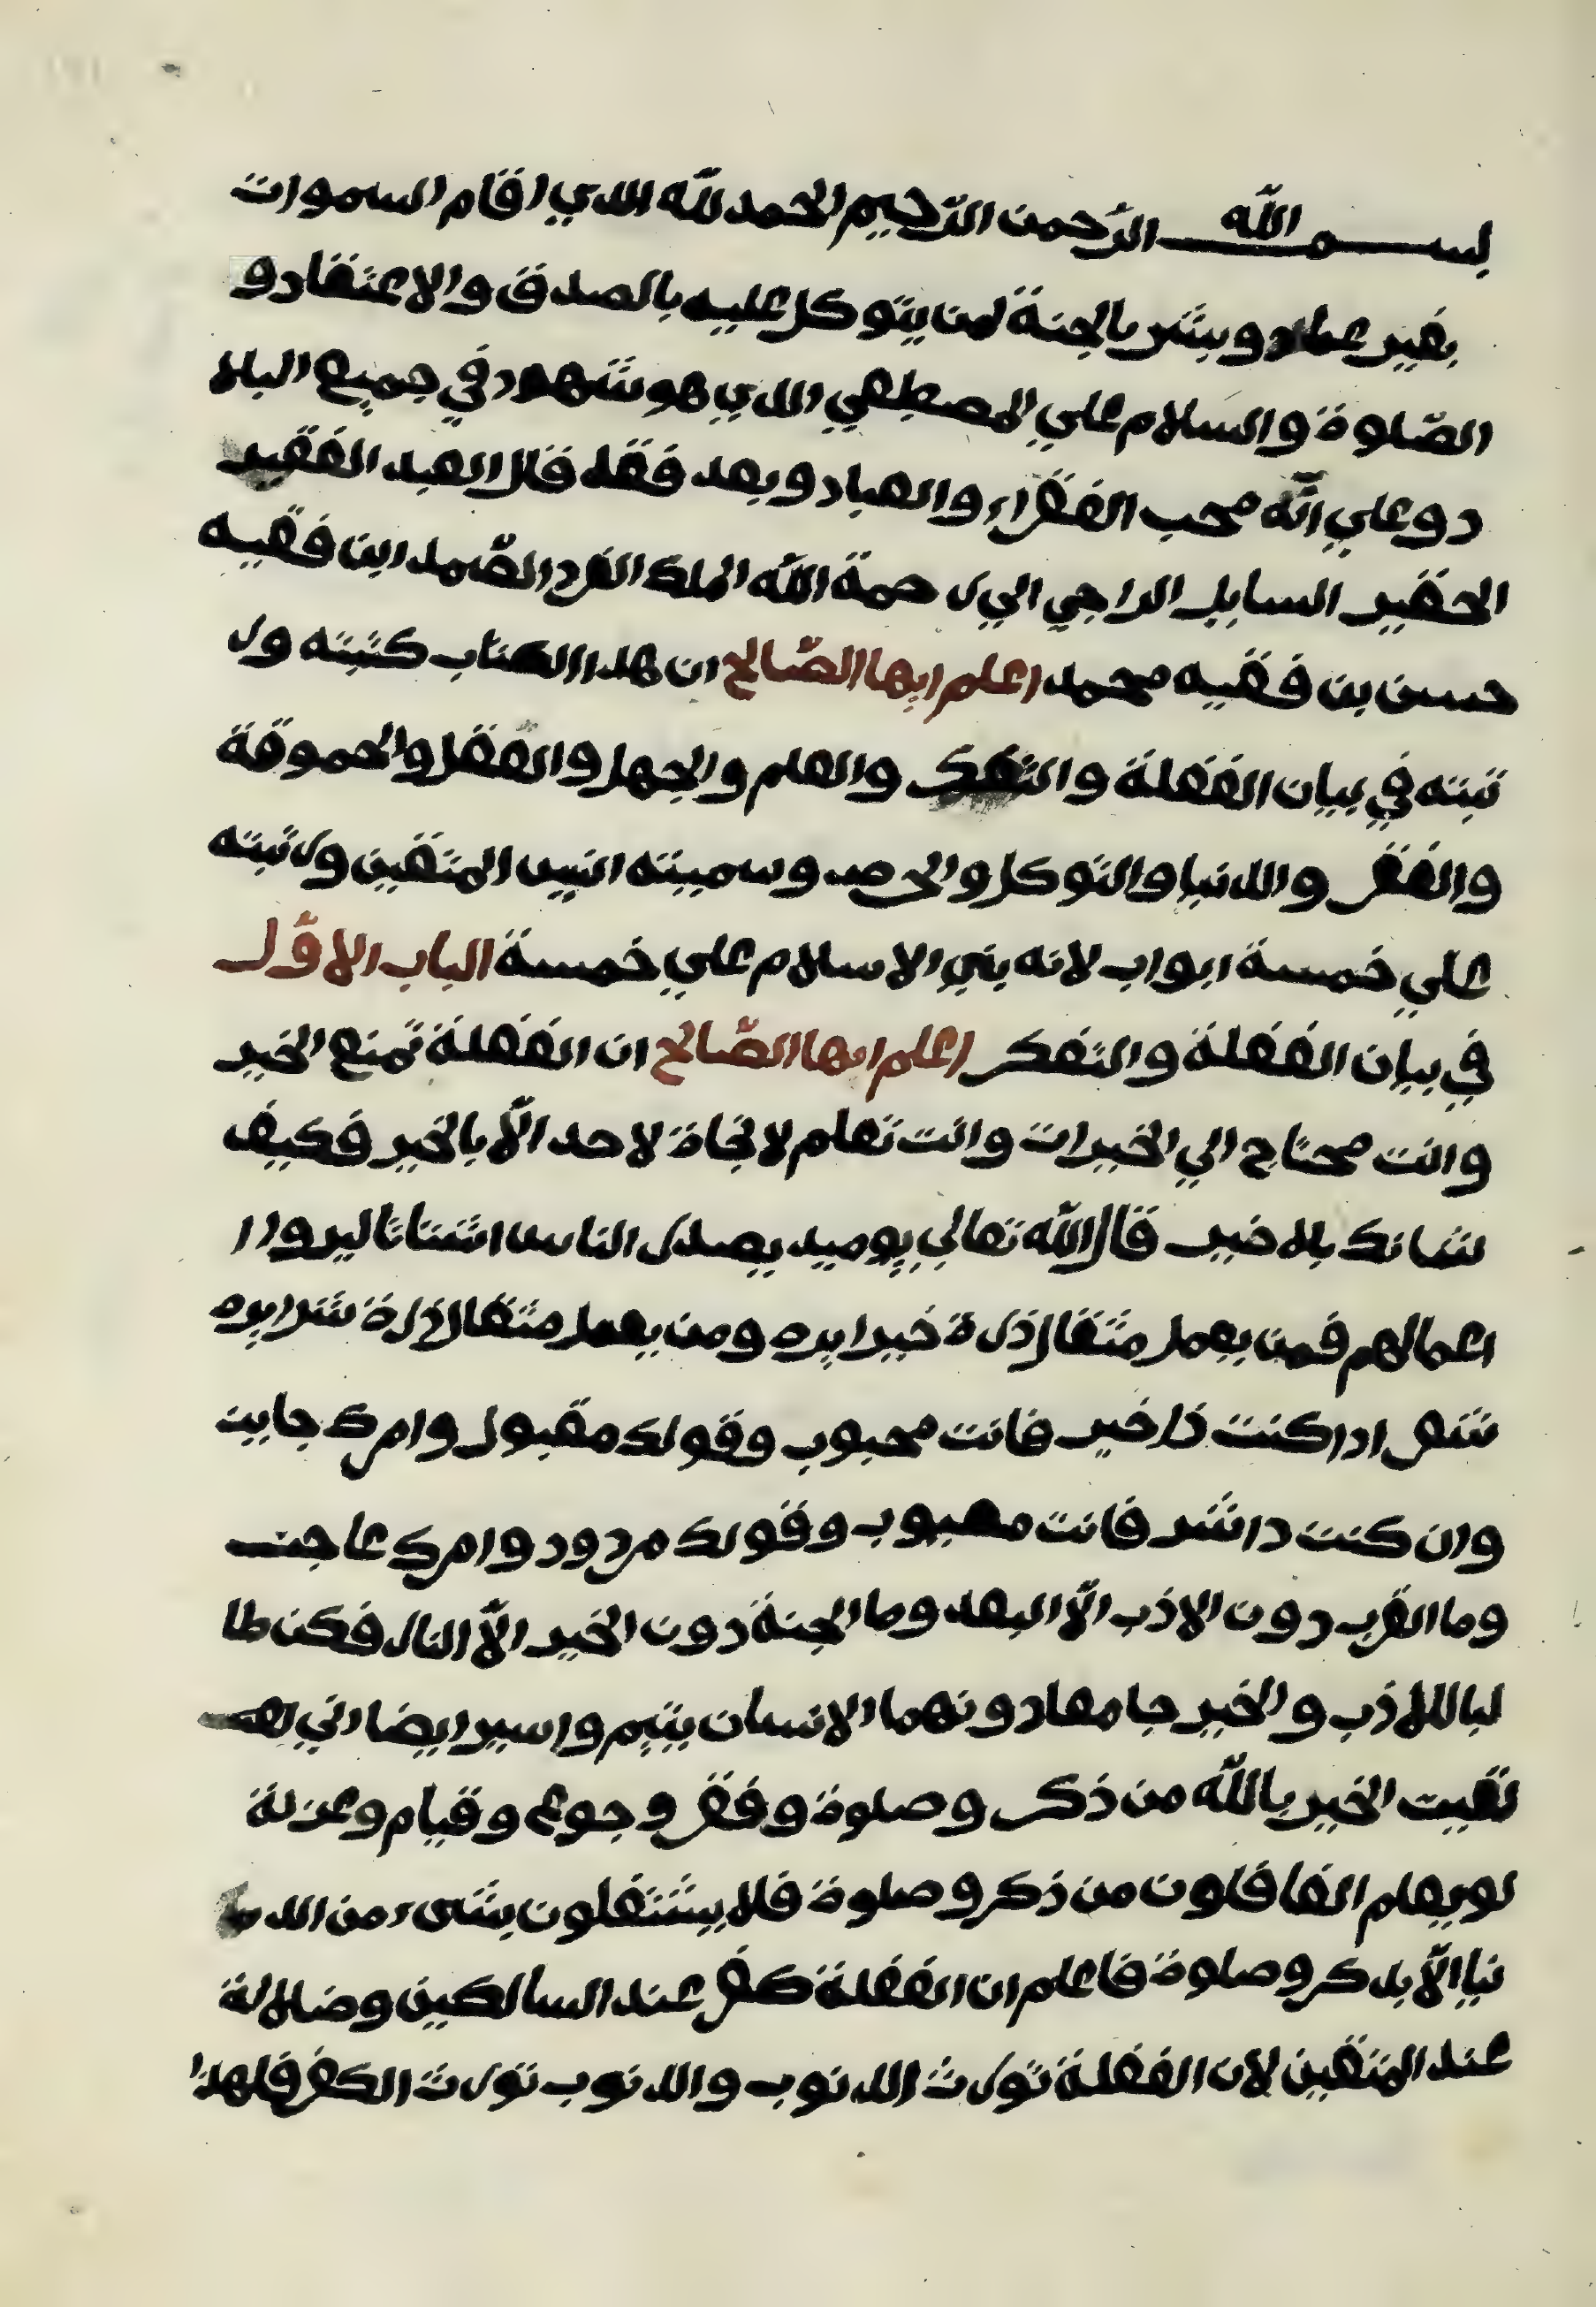 بســـم الله الرّحمن الرّحيم الحمد لله الدي اقام السموات
بغير عماد وبشر بالجنة لمن يتوكل عليه بالصدق والاعتقاد و
الصّلوة والسلام علي المصطفي الدي هو شهود في جميع البلا
د وعلي آله محب الفقراء والعباد وبعد فقد قال العبد الفقير
الحقير السايل الراجي الي رحمة الله الملك الفرد الصّمد ابن فقيه
حسن بن فقيه محمد اعلم ايها الصّالح ان هدا الكتاب كتبته ور
تبته في بيان الغفلة والتفكر والعلم والجهل والعقل والحموقة
والفقر والدنيا والتوكل والحرص وسميته انيس المتقين ورتبته
علي خمسة ابواب لانه بني الاسلام علي خمسة الباب الاوّل
في بيان الغفلة والتفكر اعلم ايها الصّالح ان الغفلة تمنع الخير
وانت محتاج الي الخيرات وانت تعلم لا نجاة لاحد الّا بالخير فكيف
شانك بلا خير قال الله تعالي يوميد يصدر الناس اشتاتا ليروا ا
اعمالهم فمن يعمل مثقال ذرة خيرا يره ومن يعمل مثقال ذرة شرا يره
شعر ادا كنت ذا خير فانت محبوب وقولك مقبول وامرك جايز
وان كنت دا شر فانت معيوب وقولك مردود وامرك عاجز
وما القرب دون الادب الّا البعد وما الجنة دون الخير الّا النار فكن طا
لبا للادب والخير جامعا دونهما الانسان يتيم واسير ايضا اني لعـ
لقيت الخير بالله من ذكر وصلوة وفقر وجوع وقيام وعزلة
لو يعلم الغافلون من ذكر وصلوة فلا يشتغلون بشىء من الد
نيا الّا بدكر وصلوة فاعلم ان الغفلة كفر عند السالكين وضلالة
عند المتقين لان الغفلة تورث الدنوب والدنوب تورث الكفر فلهدا